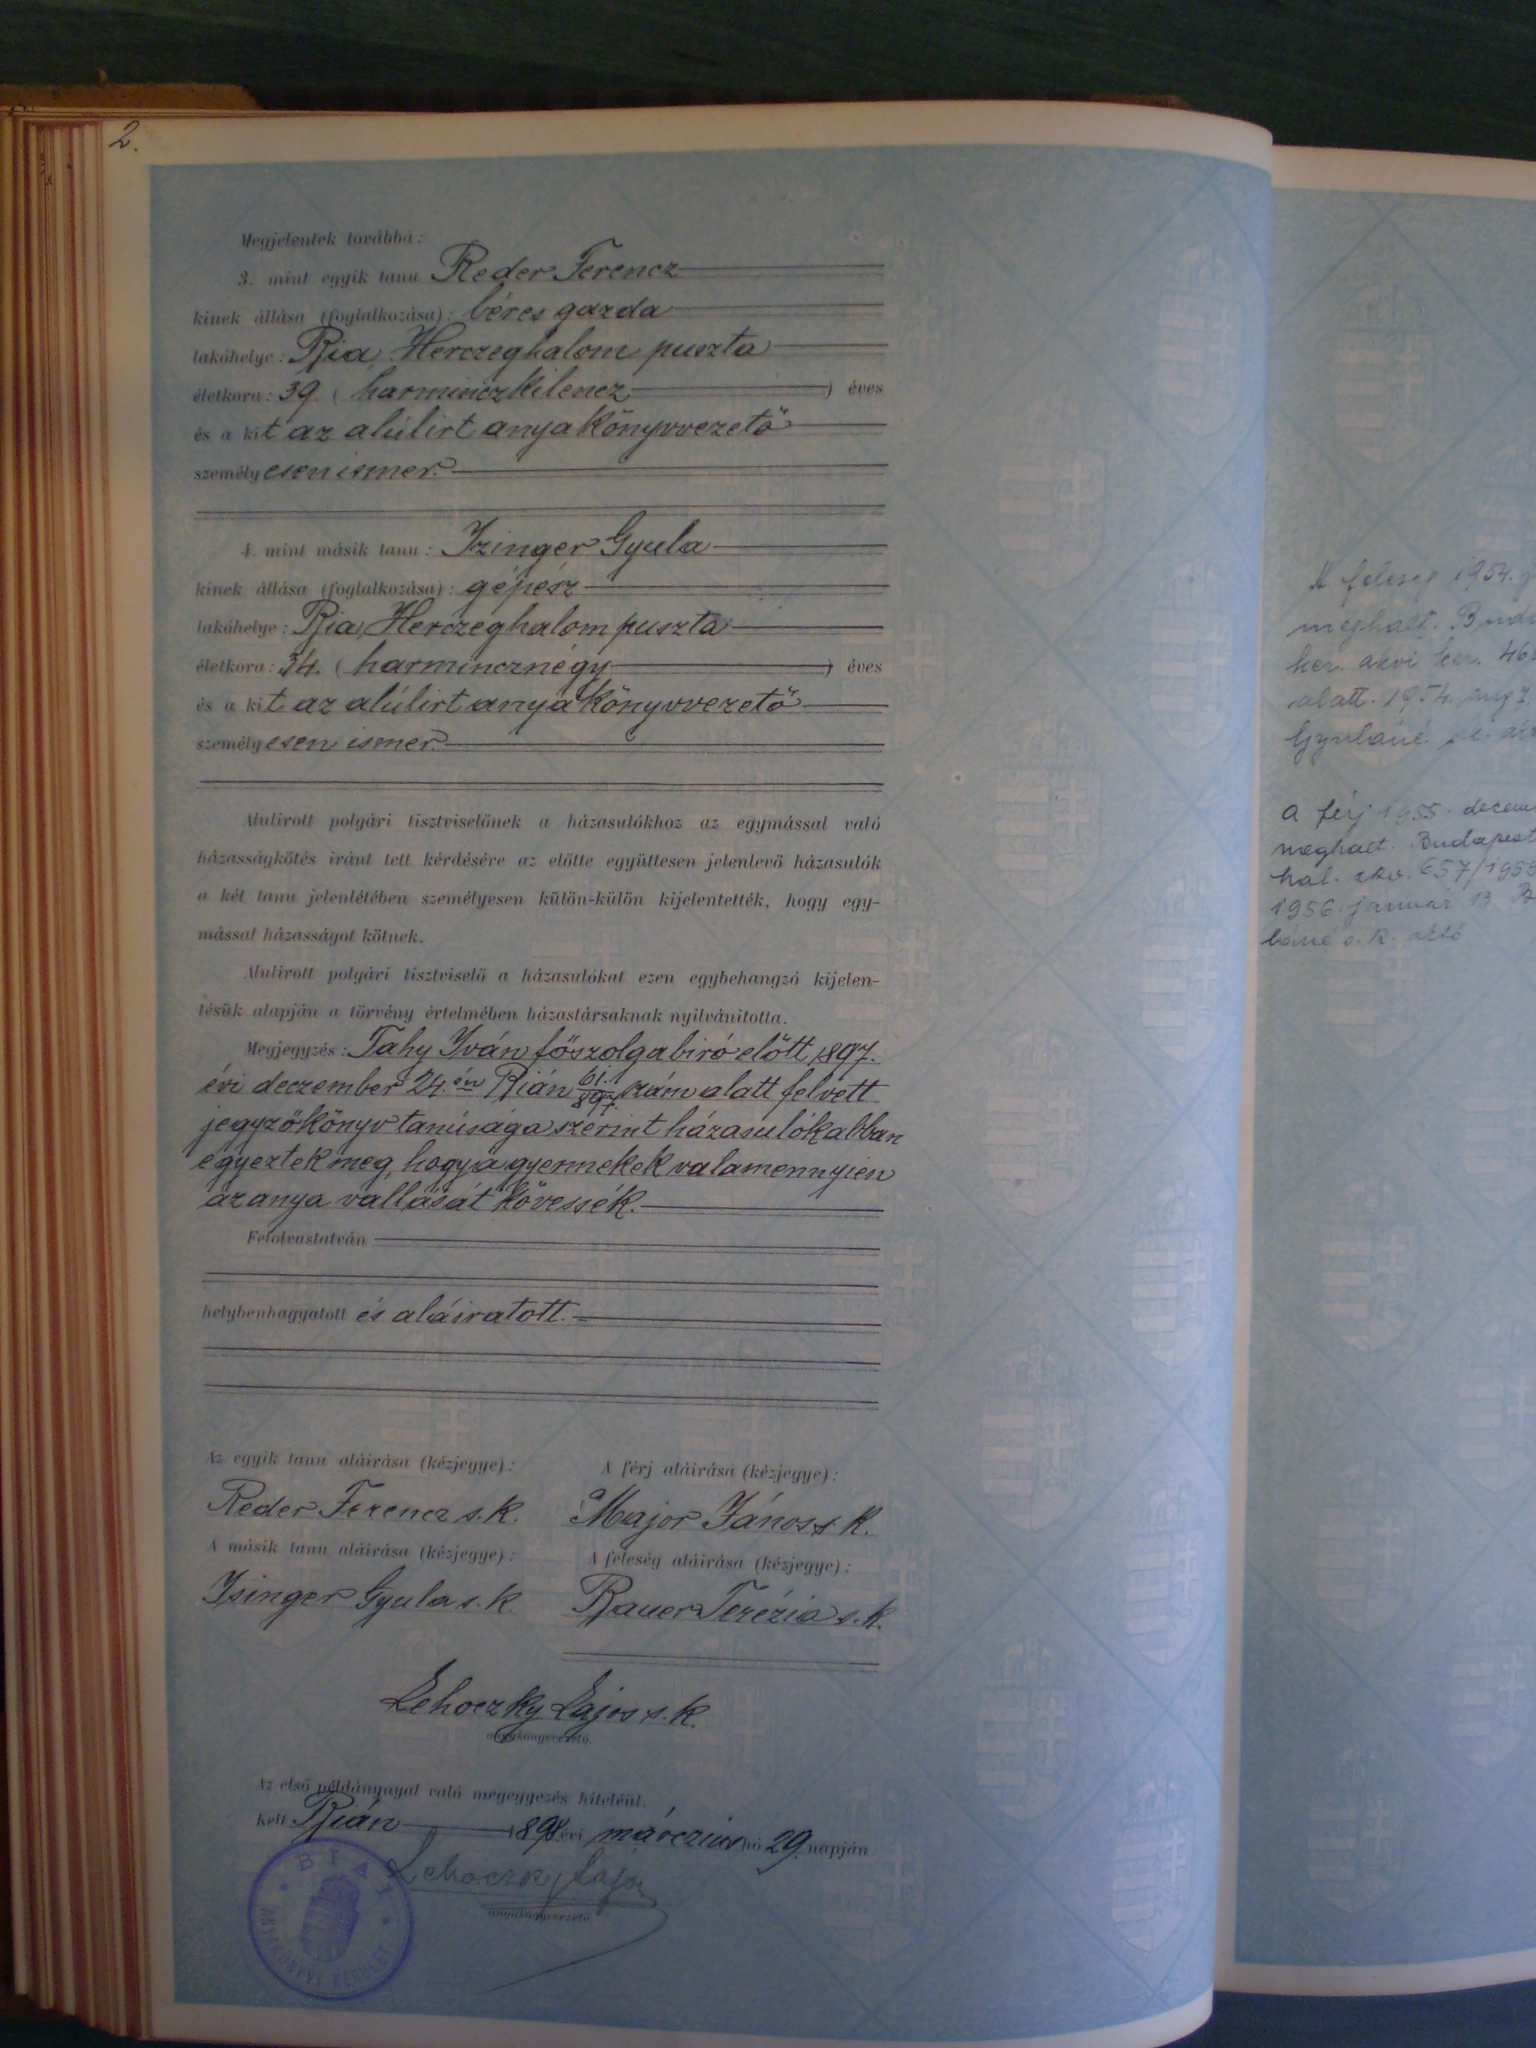 2.
Megjelentek továbbá:
3. mint egyik tanu Reder Ferencz
kinek állása (foglalkozása): béres gazda
lakóhelye: Bia, Herczeghalom puszta
életkora: 39. (harminczkilencz) éves
és a kit az alúlirt anyakönyvvezető
személyesen ismer.
4. mint másik tanu: Izinger Gyula
kinek állása (foglalkozása): gépész
lakóhelye: Bia, Herczeghalom puszta
életkora: 34. (harmincznégy) éves
és a kit az alúlirt anyakönyvvezető
személyesen ismer.
Alulirott polgári tisztviselőnek a házasulókhoz az egymással való
házasságkötés iránt tett kérdésére az előtte együttesen jelenlevő házasulók
a két tanu jelenlétében személyesen külön-külön kijelentették, hogy egy-
mással házasságot kötnek.
Alulirott polgári tisztviselő a házasulókat ezen egybehangzó kijelen-
tésük alapján a törvény értelmében házastársaknak nyilvánitotta.
Megjegyzés: Tahy Iván főszolgabiró előtt 1897.
évi deczember 24.én Bián 61./897. szám alatt felvett
jegyzőkönyv tanúsága szerint házasulók abban
egyeztek meg, hogy a gyermekek valamennyien
az anya vallását kövessék.
Felolvastatván
helybenhagyatott és aláiratott.
Az egyik tanu aláirása (kézjegye): A férj aláirása (kézjegye):
Reder Ferencz s. k. Major János s. k.
A másik tanu aláirása (kézjegye): A feleség aláirása (kézjegye):
Isinger Gyula s. k. Bauer Terézia s. k.
Lehoczky Lajos s. k.
anyakönyvvezető.
Az első példánynyal való megegyezés hiteléül.
Kelt Bián 1898 évi márczius hó 29. napján
Lehoczky Lajos
anyakönyvvezető.
BIAI
ANYAKÖNYVI KERÜLET
A feleség 1954.
meghalt. Buda
ker. akvi ker. 46
alatt. 1954. aug 7.
Gyuláné
A férj 1955. decem
meghalt. Budapest
hal. akv. 657/1955
1956. január 13.
s. k.